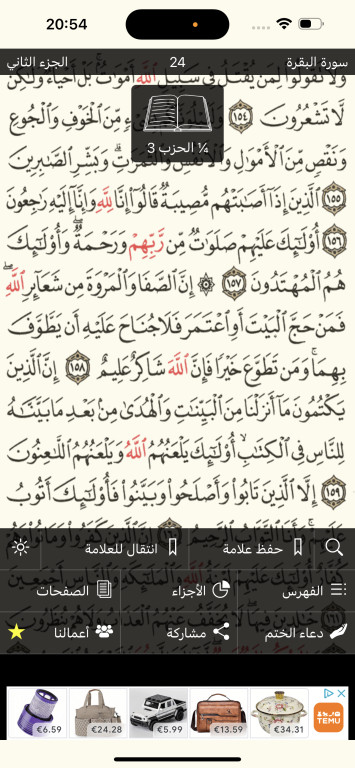 20:54
سورة البقرة
24
الجزء الثاني
وَلَا تَقُولُوا۟ لِمَن يُقْتَلُ فِى سَبِيلِ ٱللَّهِ أَمْوَٰتٌۢ بَلْ أَحْيَآءٌ وَلَٰكِن
لَّا تَشْعُرُونَ ١٥٤ ءٍ مِّنَ ٱلْخَوْفِ وَٱلْجُوعِ
¼ الحزب 3
وَنَقْصٍ مِّنَ ٱلْأَمْوَٰلِ وَٱلْأَنفُسِ وَٱلثَّمَرَٰتِ وَبَشِّرِ ٱلصَّٰبِرِينَ
١٥٥ ٱلَّذِينَ إِذَآ أَصَٰبَتْهُم مُّصِيبَةٌ قَالُوٓا۟ إِنَّا لِلَّهِ وَإِنَّآ إِلَيْهِ رَٰجِعُونَ
١٥٦ أُو۟لَٰٓئِكَ عَلَيْهِمْ صَلَوَٰتٌ مِّن رَّبِّهِمْ وَرَحْمَةٌ وَأُو۟لَٰٓئِكَ
هُمُ ٱلْمُهْتَدُونَ ١٥٧ ۞ إِنَّ ٱلصَّفَا وَٱلْمَرْوَةَ مِن شَعَآئِرِ ٱللَّهِ
فَمَنْ حَجَّ ٱلْبَيْتَ أَوِ ٱعْتَمَرَ فَلَا جُنَاحَ عَلَيْهِ أَن يَطَّوَّفَ
بِهِمَا وَمَن تَطَوَّعَ خَيْرًا فَإِنَّ ٱللَّهَ شَاكِرٌ عَلِيمٌ ١٥٨ إِنَّ ٱلَّذِينَ
يَكْتُمُونَ مَآ أَنزَلْنَا مِنَ ٱلْبَيِّنَٰتِ وَٱلْهُدَىٰ مِنۢ بَعْدِ مَا بَيَّنَّٰهُ
لِلنَّاسِ فِى ٱلْكِتَٰبِ أُو۟لَٰٓئِكَ يَلْعَنُهُمُ ٱللَّهُ وَيَلْعَنُهُمُ ٱللَّٰعِنُونَ
١٥٩ إِلَّا ٱلَّذِينَ تَابُوا۟ وَأَصْلَحُوا۟ وَبَيَّنُوا۟ فَأُو۟لَٰٓئِكَ أَتُوبُ
حفظ علامة
انتقال للعلامة
الفهرس
الأجزاء
الصفحات
دعاء الختم
مشاركة
أعمالنا
€6.59
€24.28
€5.99
€13.59
€34.31
TEMU